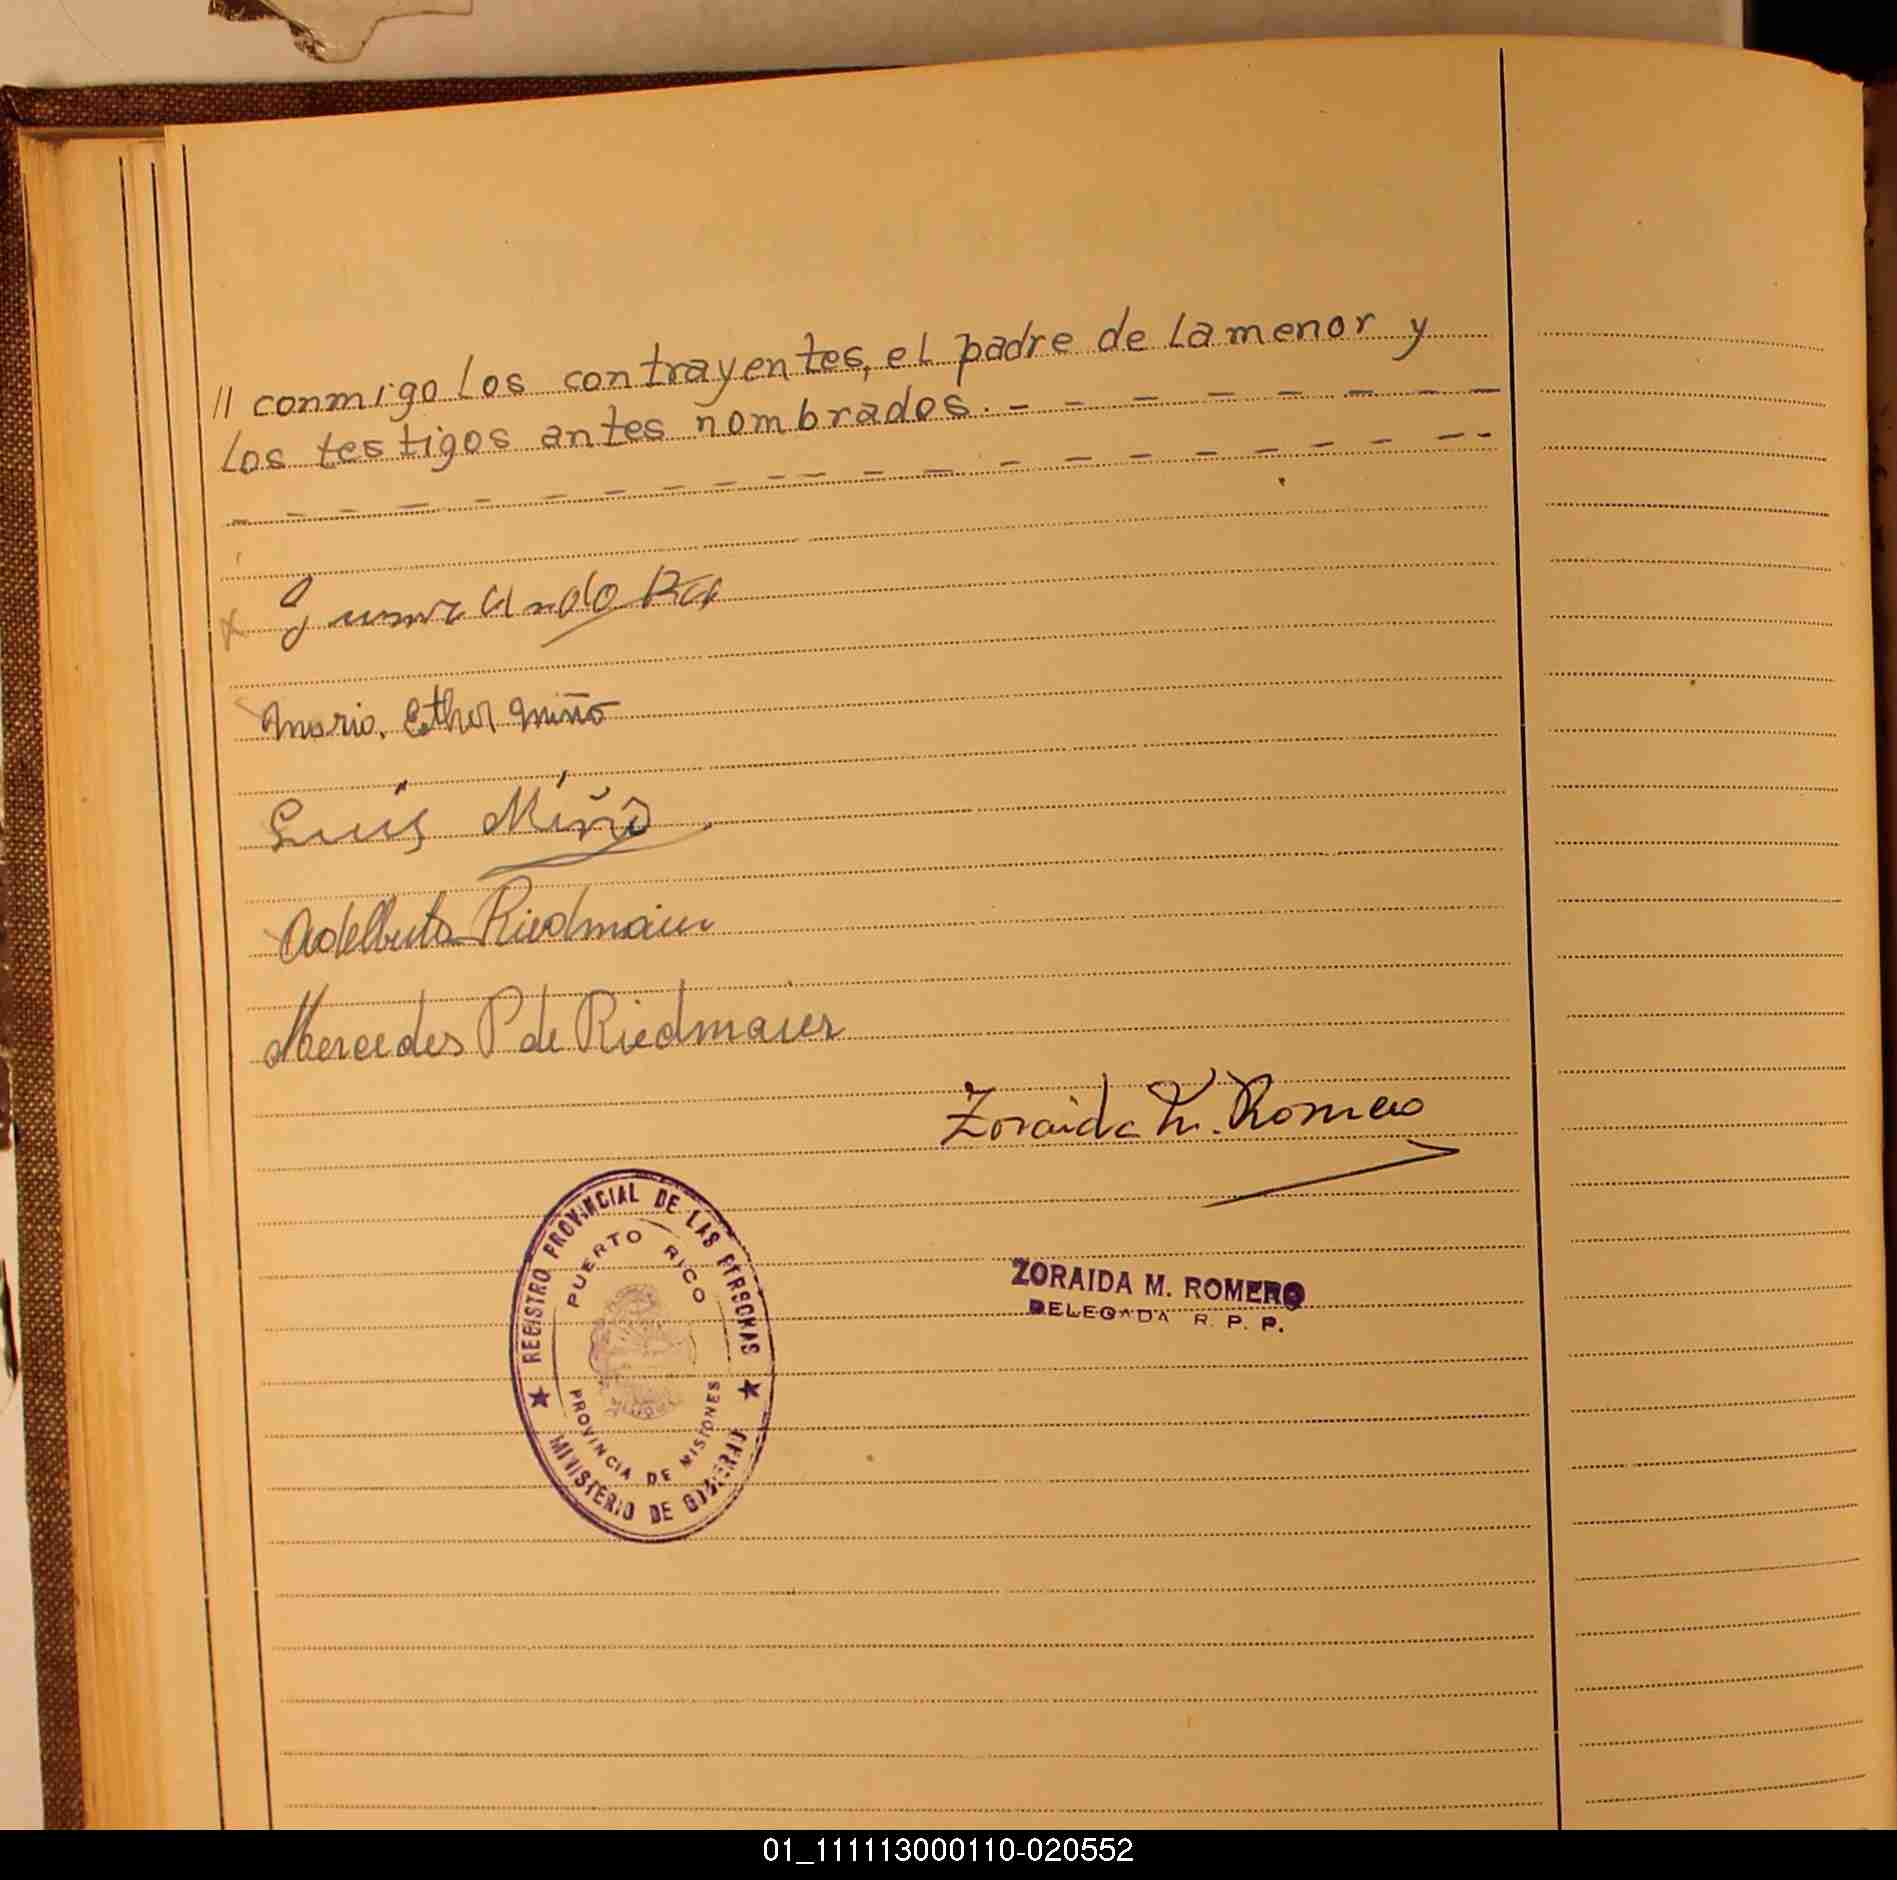 // conmigo los contrayentes, el padre de la menor y
los testigos antes nombrados. - - - - - - - -
- - - - - - - - - - - - - - - - - - -
x
Maria. Esther Miño
Luis Miño
Adelberto Riedmaier
Mercedes P de Riedmaier
Zoraida M. Romero
REGISTRO PROVINCIAL DE LAS PERSONAS
PUERTO RICO
PROVINCIA DE MISIONES
★ MINISTERIO DE GOBIERNO ★
ZORAIDA M. ROMERO
DELEGADA R. P. P.
01_111113000110-020552